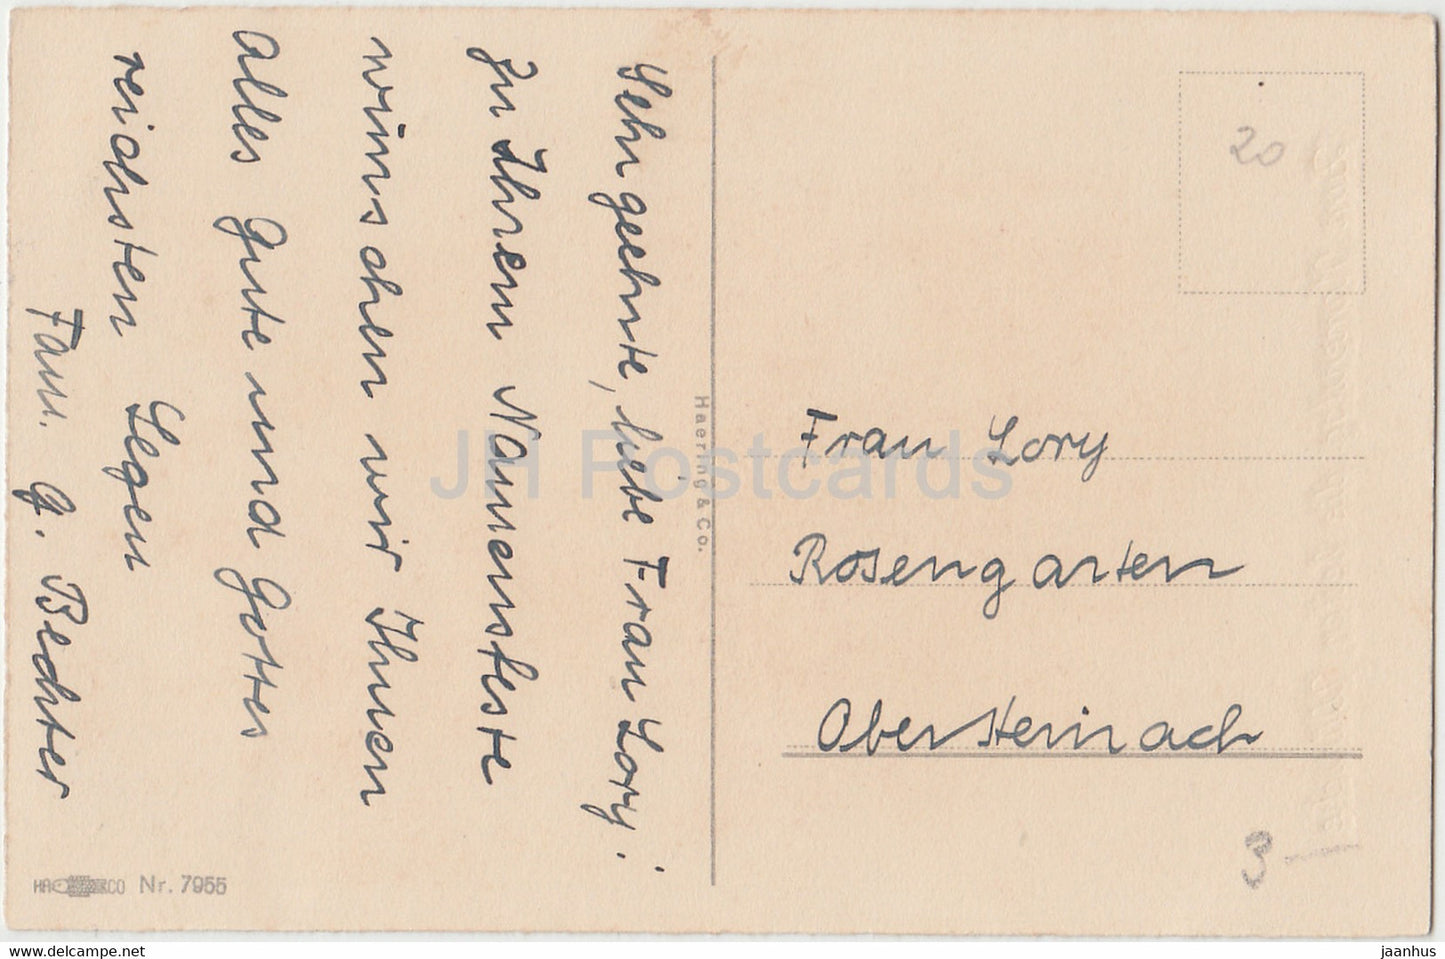 Sehrgeehrte, liebe Frau Lory!
Zu Ihrem Namensfeste
wünschen wir Ihnen
alles Gute und Gottes
reichsten Segen
Fam. G. Bechter
Haering & Co.
20
Frau Lory
Rosengarten
Obersteinach
3 —
HA CO Nr. 7955
JH Postcards
www.delcampe.net
jaanhus